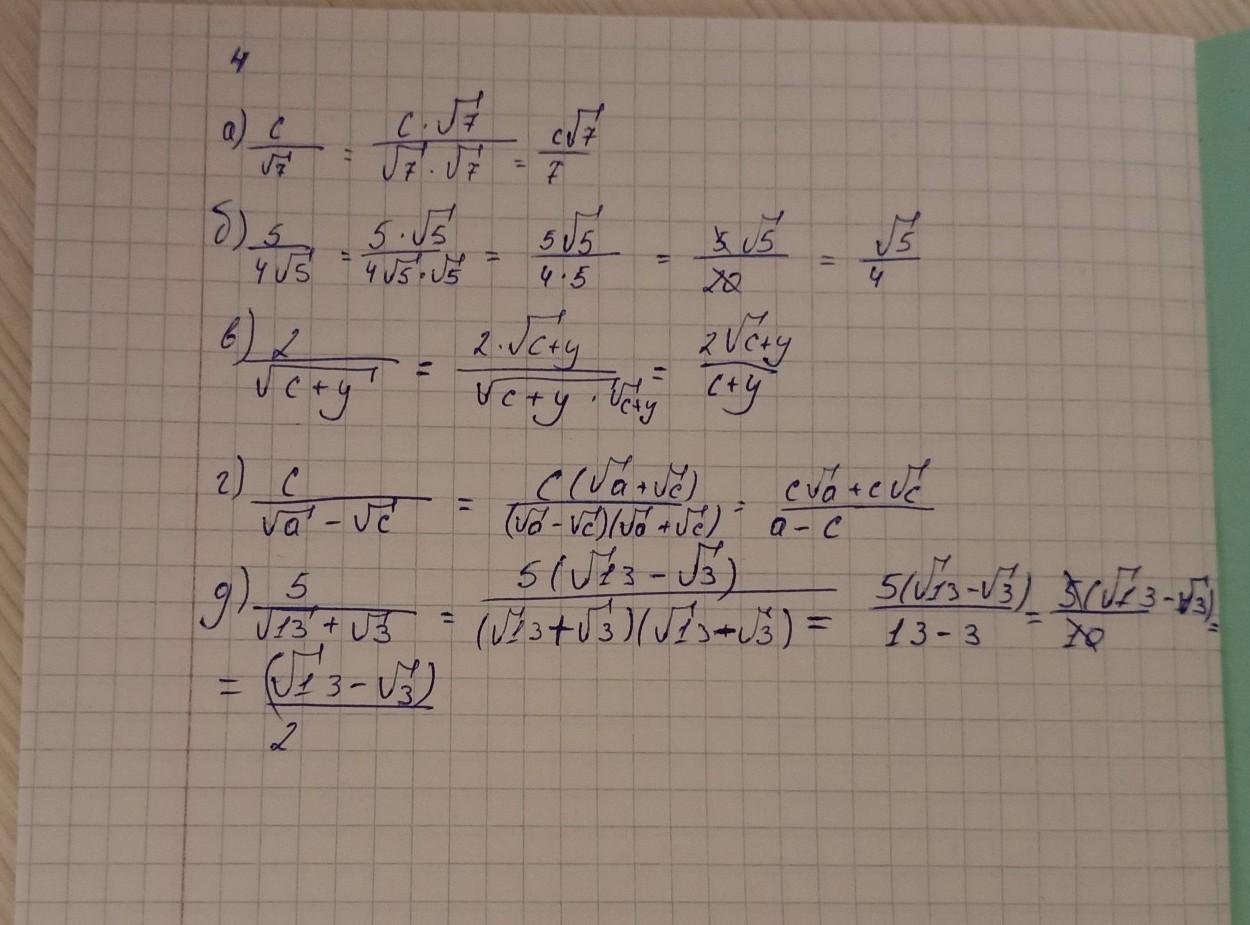 4
а) c/√7 = c·√7/√7·√7 = c√7/7
б) 5/4√5 = 5·√5/4√5·√5 = 5√5/4·5 = 5√5/20 = √5/4
в) 2/√c+y = 2·√c+y/√c+y·√c+y = 2√c+y/c+y
г) c/√a-√c = c(√a+√c)/(√a-√c)(√a+√c) = c√a+c√c/a-c
д) 5/√13+√3 = 5(√13-√3)/(√13+√3)(√13-√3) = 5(√13-√3)/13-3 = 5(√13-√3)/10 =
= (√13-√3)/2